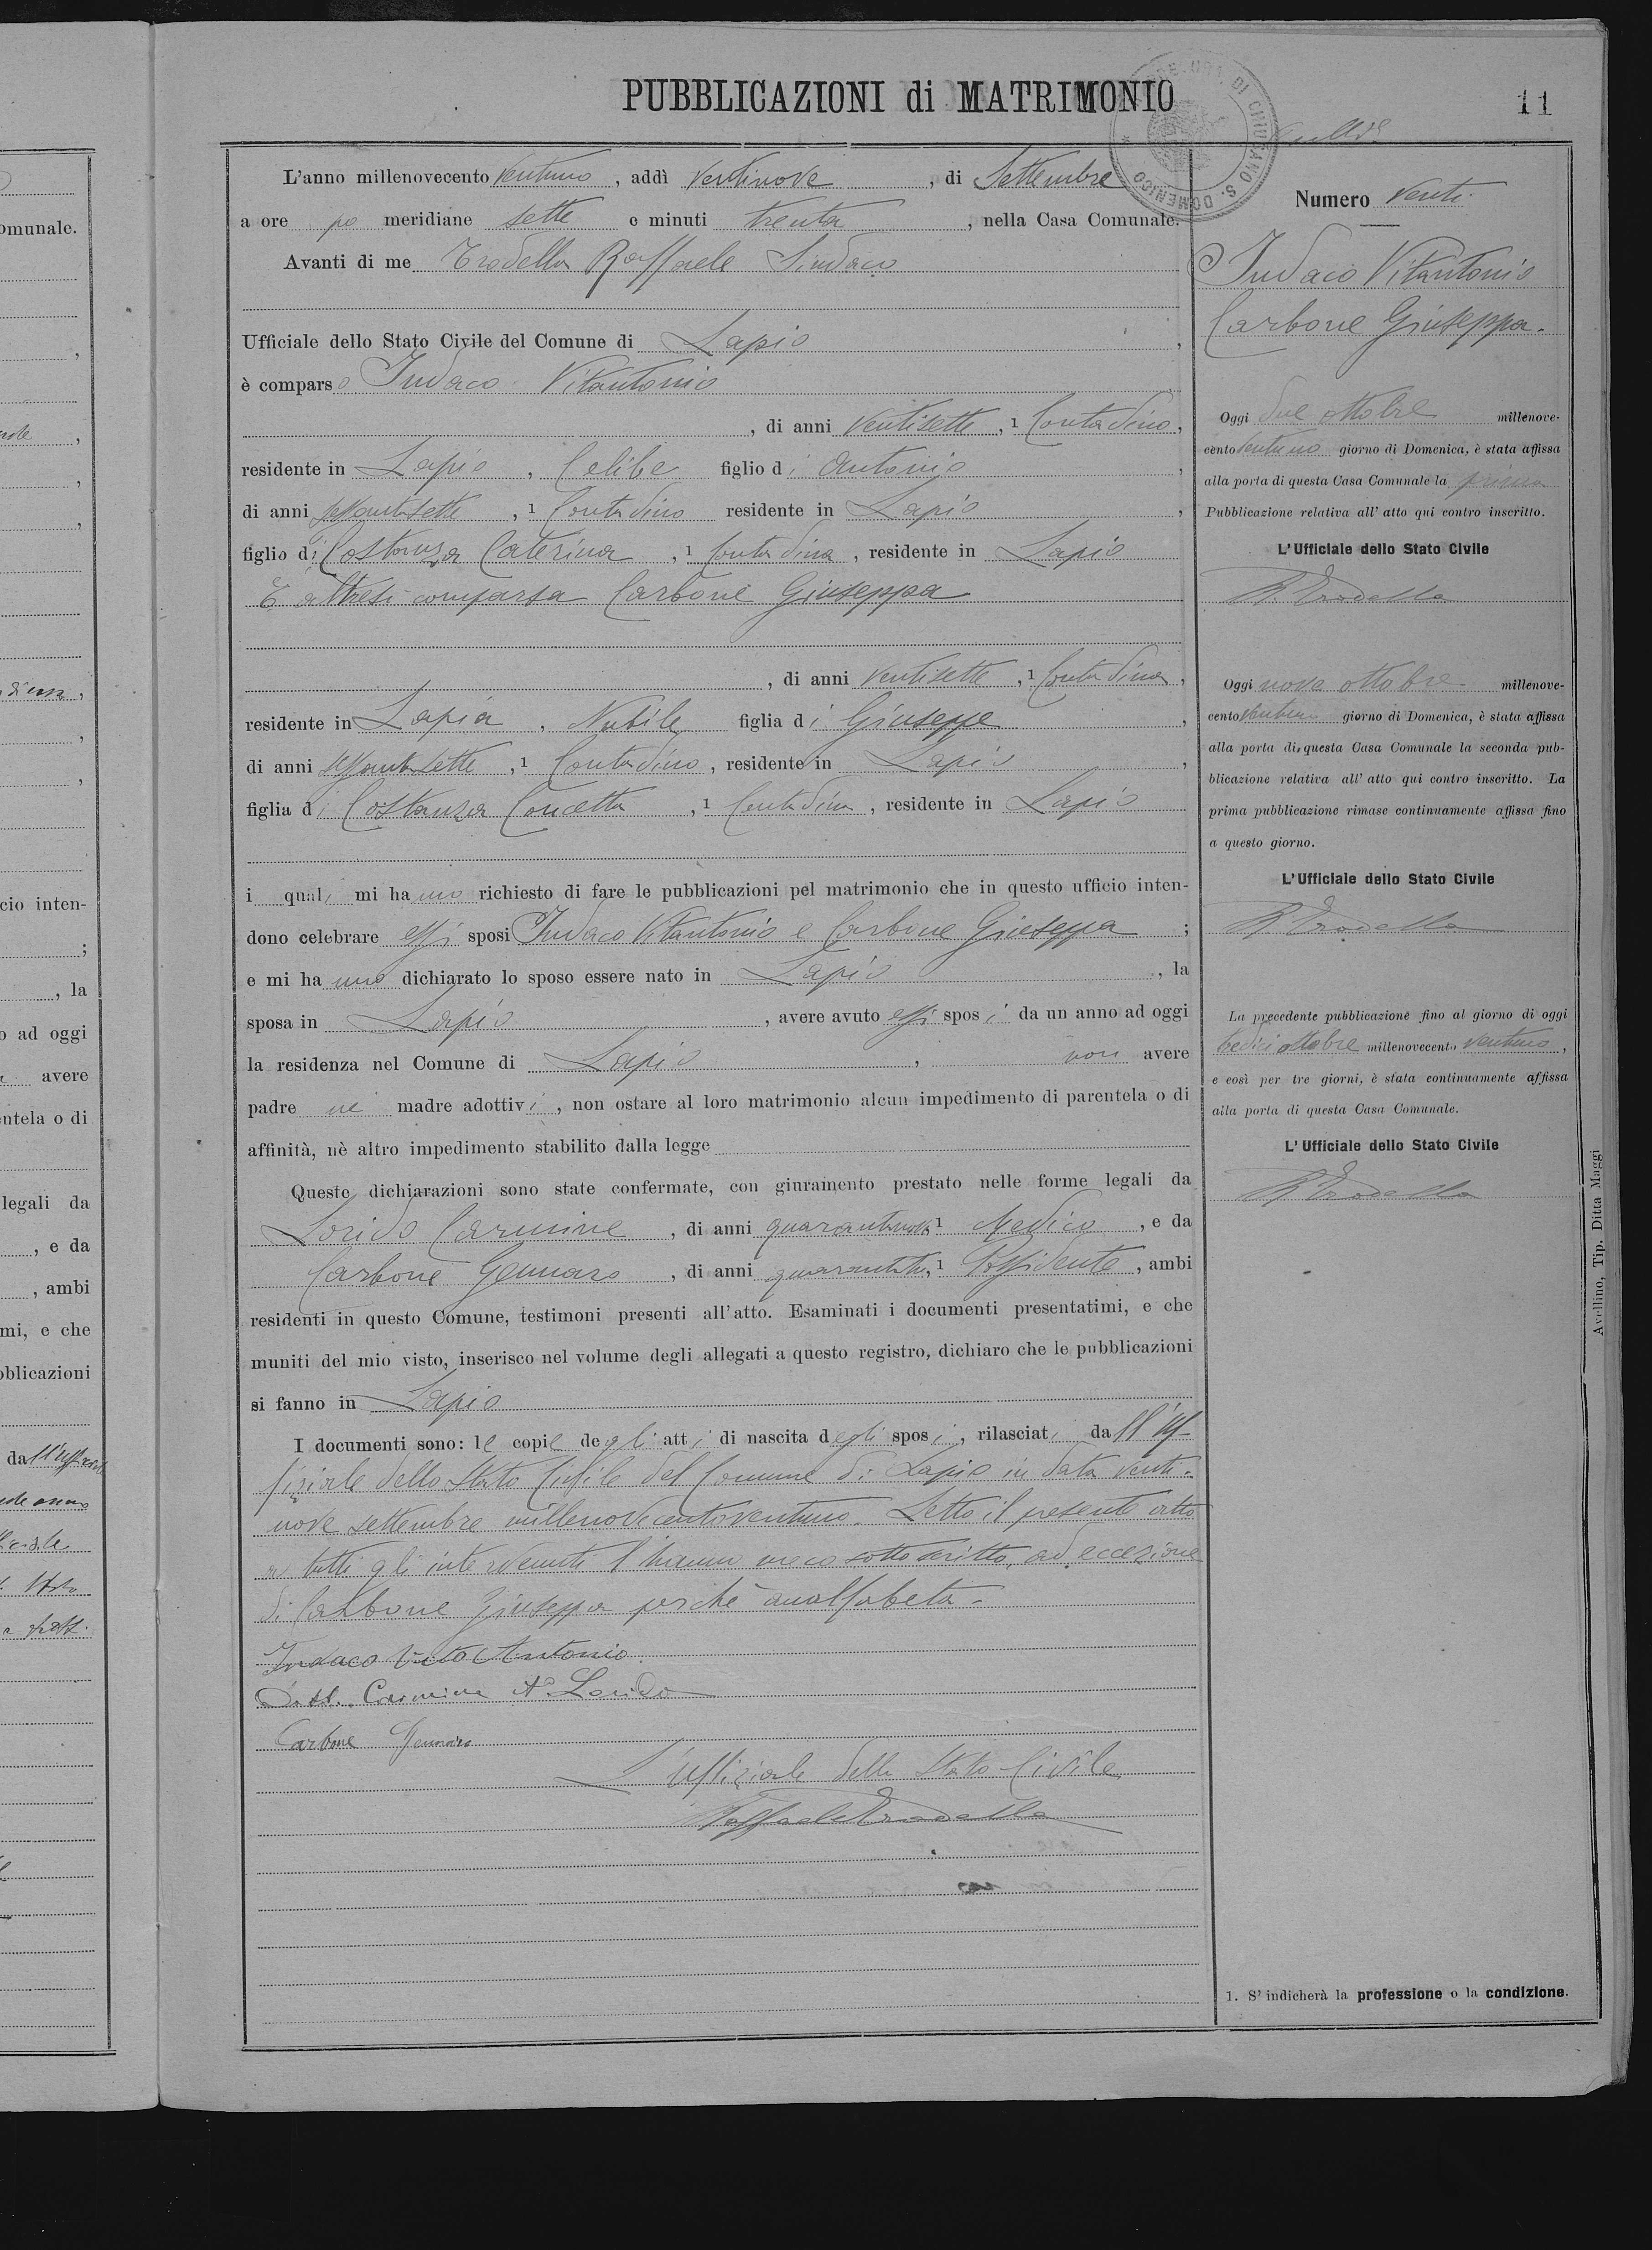 PUBBLICAZIONI di MATRIMONIO
11
L'anno millenovecento ventuno, addì ventinove, di Settembre
a ore po meridiane sette e minuti trenta, nella Casa Comunale.
Avanti di me Trodella Raffaele Sindaco
Ufficiale dello Stato Civile del Comune di Lapio,
è comparso Indaco Vitantonio
, di anni ventisette, 1 Contadino,
residente in Lapio, Celibe figlio di Antonio,
di anni sessantasette, 1 Contadino residente in Lapio,
figlio di Costanza Caterina, 1 Contadina, residente in Lapio
È altresì comparsa Carbone Giuseppa
, di anni ventisette, 1 Contadina,
residente in Lapio, Nubile figlia di Giuseppe,
di anni sessantasette, 1 Contadino, residente in Lapio,
figlia di Costanza Concetta, 1 Contadina, residente in Lapio
i quali mi hanno richiesto di fare le pubblicazioni pel matrimonio che in questo ufficio inten-
dono celebrare essi sposi Indaco Vitantonio e Carbone Giuseppa;
e mi hanno dichiarato lo sposo essere nato in Lapio, la
sposa in Lapio, avere avuto essi sposi da un anno ad oggi
la residenza nel Comune di Lapio, non avere
padre nè madre adottivi, non ostare al loro matrimonio alcun impedimento di parentela o di
affinità, nè altro impedimento stabilito dalla legge
Queste dichiarazioni sono state confermate, con giuramento prestato nelle forme legali da
Lorido Carmine, di anni quarantanove 1 Medico, e da
Carbone Gennaro, di anni quarantatre, 1 Possidente, ambi
residenti in questo Comune, testimoni presenti all'atto. Esaminati i documenti presentatimi, e che
muniti del mio visto, inserisco nel volume degli allegati a questo registro, dichiaro che le pubblicazioni
si fanno in Lapio
I documenti sono: le copie degli atti di nascita degli sposi, rilasciati dall'uf-
fiziale dello Stato Civile del Comune di Lapio in data venti-
nove settembre millenovecentoventuno. Letto il presente atto
a tutti gli intervenuti l'hanno meco sottoscritto, ad eccezione
di Carbone Giuseppa perchè analfabeta.
Indaco Vito Antonio
Dott. Carmine A. Lorido
Carbone Gennaro
L'uffiziale dello Stato Civile
Raffaele Trodella
Numero venti
Indaco Vitantonio
Carbone Giuseppa.
Oggi due ottobre millenove-
cento ventuno giorno di Domenica, è stata affissa
alla porta di questa Casa Comunale la prima
Pubblicazione relativa all' atto qui contro inscritto.
L'Ufficiale dello Stato Civile
R. Trodella
Oggi nove ottobre millenove-
cento ventuno giorno di Domenica, è stata affissa
alla porta di questa Casa Comunale la seconda pub-
blicazione relativa all' atto qui contro inscritto. La
prima pubblicazione rimase continuamente affissa fino
a questo giorno.
L'Ufficiale dello Stato Civile
R. Trodella
La precedente pubblicazione fino al giorno di oggi
tredici ottobre millenovecento ventuno,
e così per tre giorni, è stata continuamente affissa
alla porta di questa Casa Comunale.
L' Ufficiale dello Stato Civile
R. Trodella
1. S' indicherà la professione o la condizione.
Avellino, Tip. Ditta Maggi
omunale.
cio inten-
;
, la
o ad oggi
avere
entela o di
legali da
, e da
, ambi
mi, e che
bblicazioni